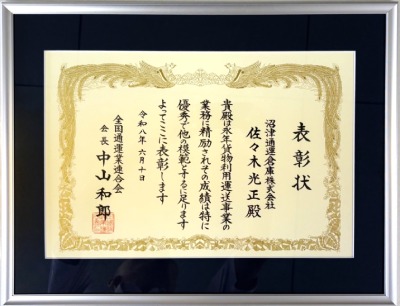 表彰状
沼津通運倉庫株式会社
佐々木光正殿
貴殿は永年貨物利用運送事業の
業務に精励されその成績は特に
優秀で他の模範とするに足ります
よってここに表彰します
令和八年六月十日
全国通運業連合会
会長 中山和郎